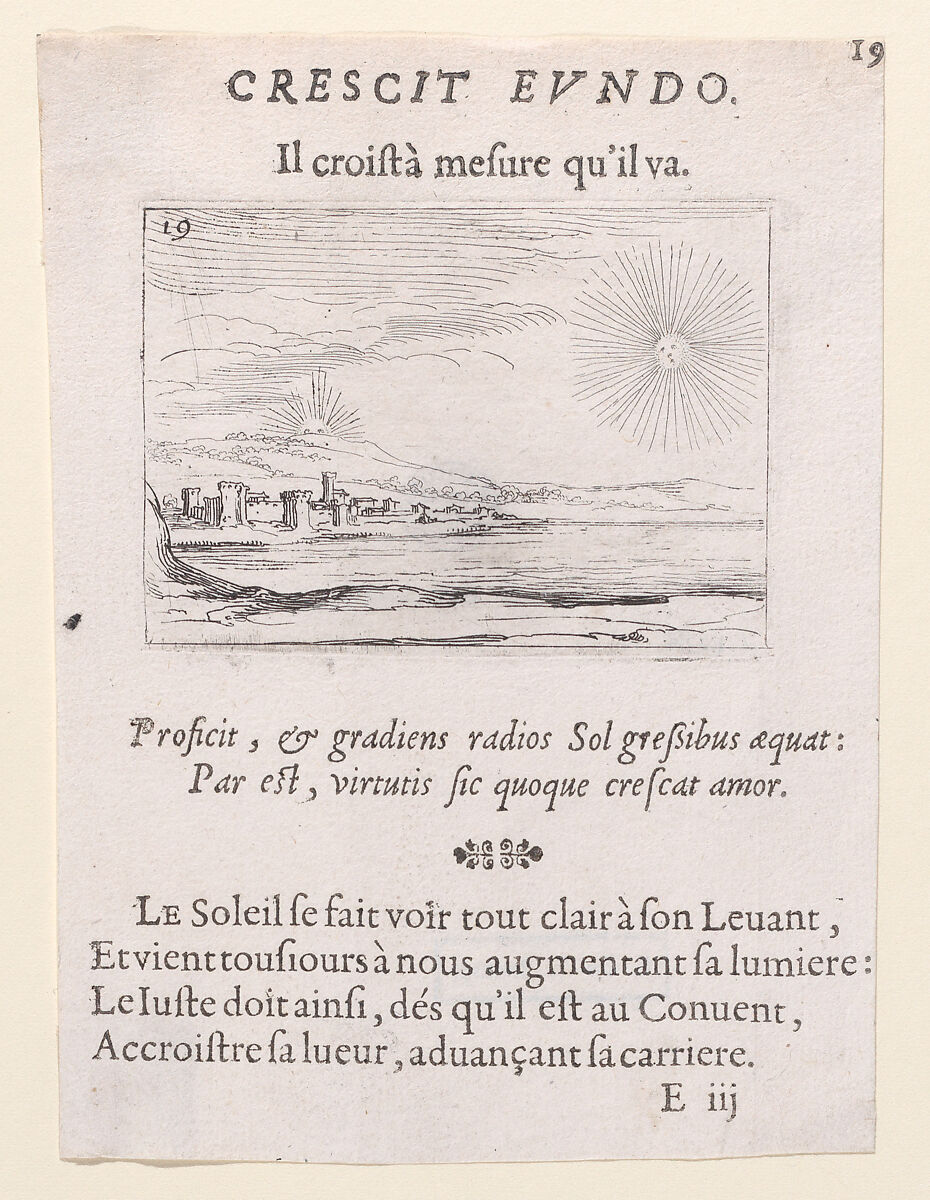 19
CRESCIT EVNDO.
Il croiſt à meſure qu'il va.
19
Proficit, & gradiens radios Sol greſsibus æquat:
Par eſt, virtutis ſic quoque creſcat amor.
LE Soleil ſe fait voir tout clair à ſon Leuant,
Et vient touſiours à nous augmentant ſa lumiere:
Le Iuſte doit ainſi, dés qu'il eſt au Conuent,
Accroiſtre ſa lueur, aduançant ſa carriere.
E iij